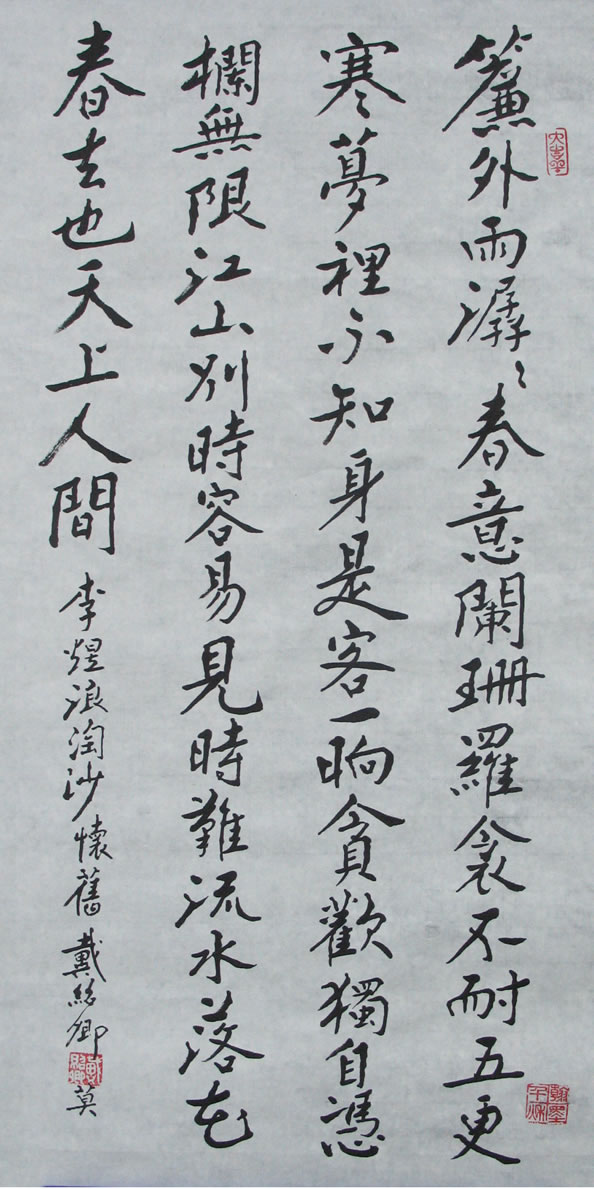 簾外雨潺〻春意闌珊羅衾不耐五更
寒〻夢裡不知身是客一晌貪歡獨自憑
欄無限江山別時容易見時難流水落花
春去也天上人間
李煜浪淘沙懷舊 戴紹卿 莫
翰墨千秋